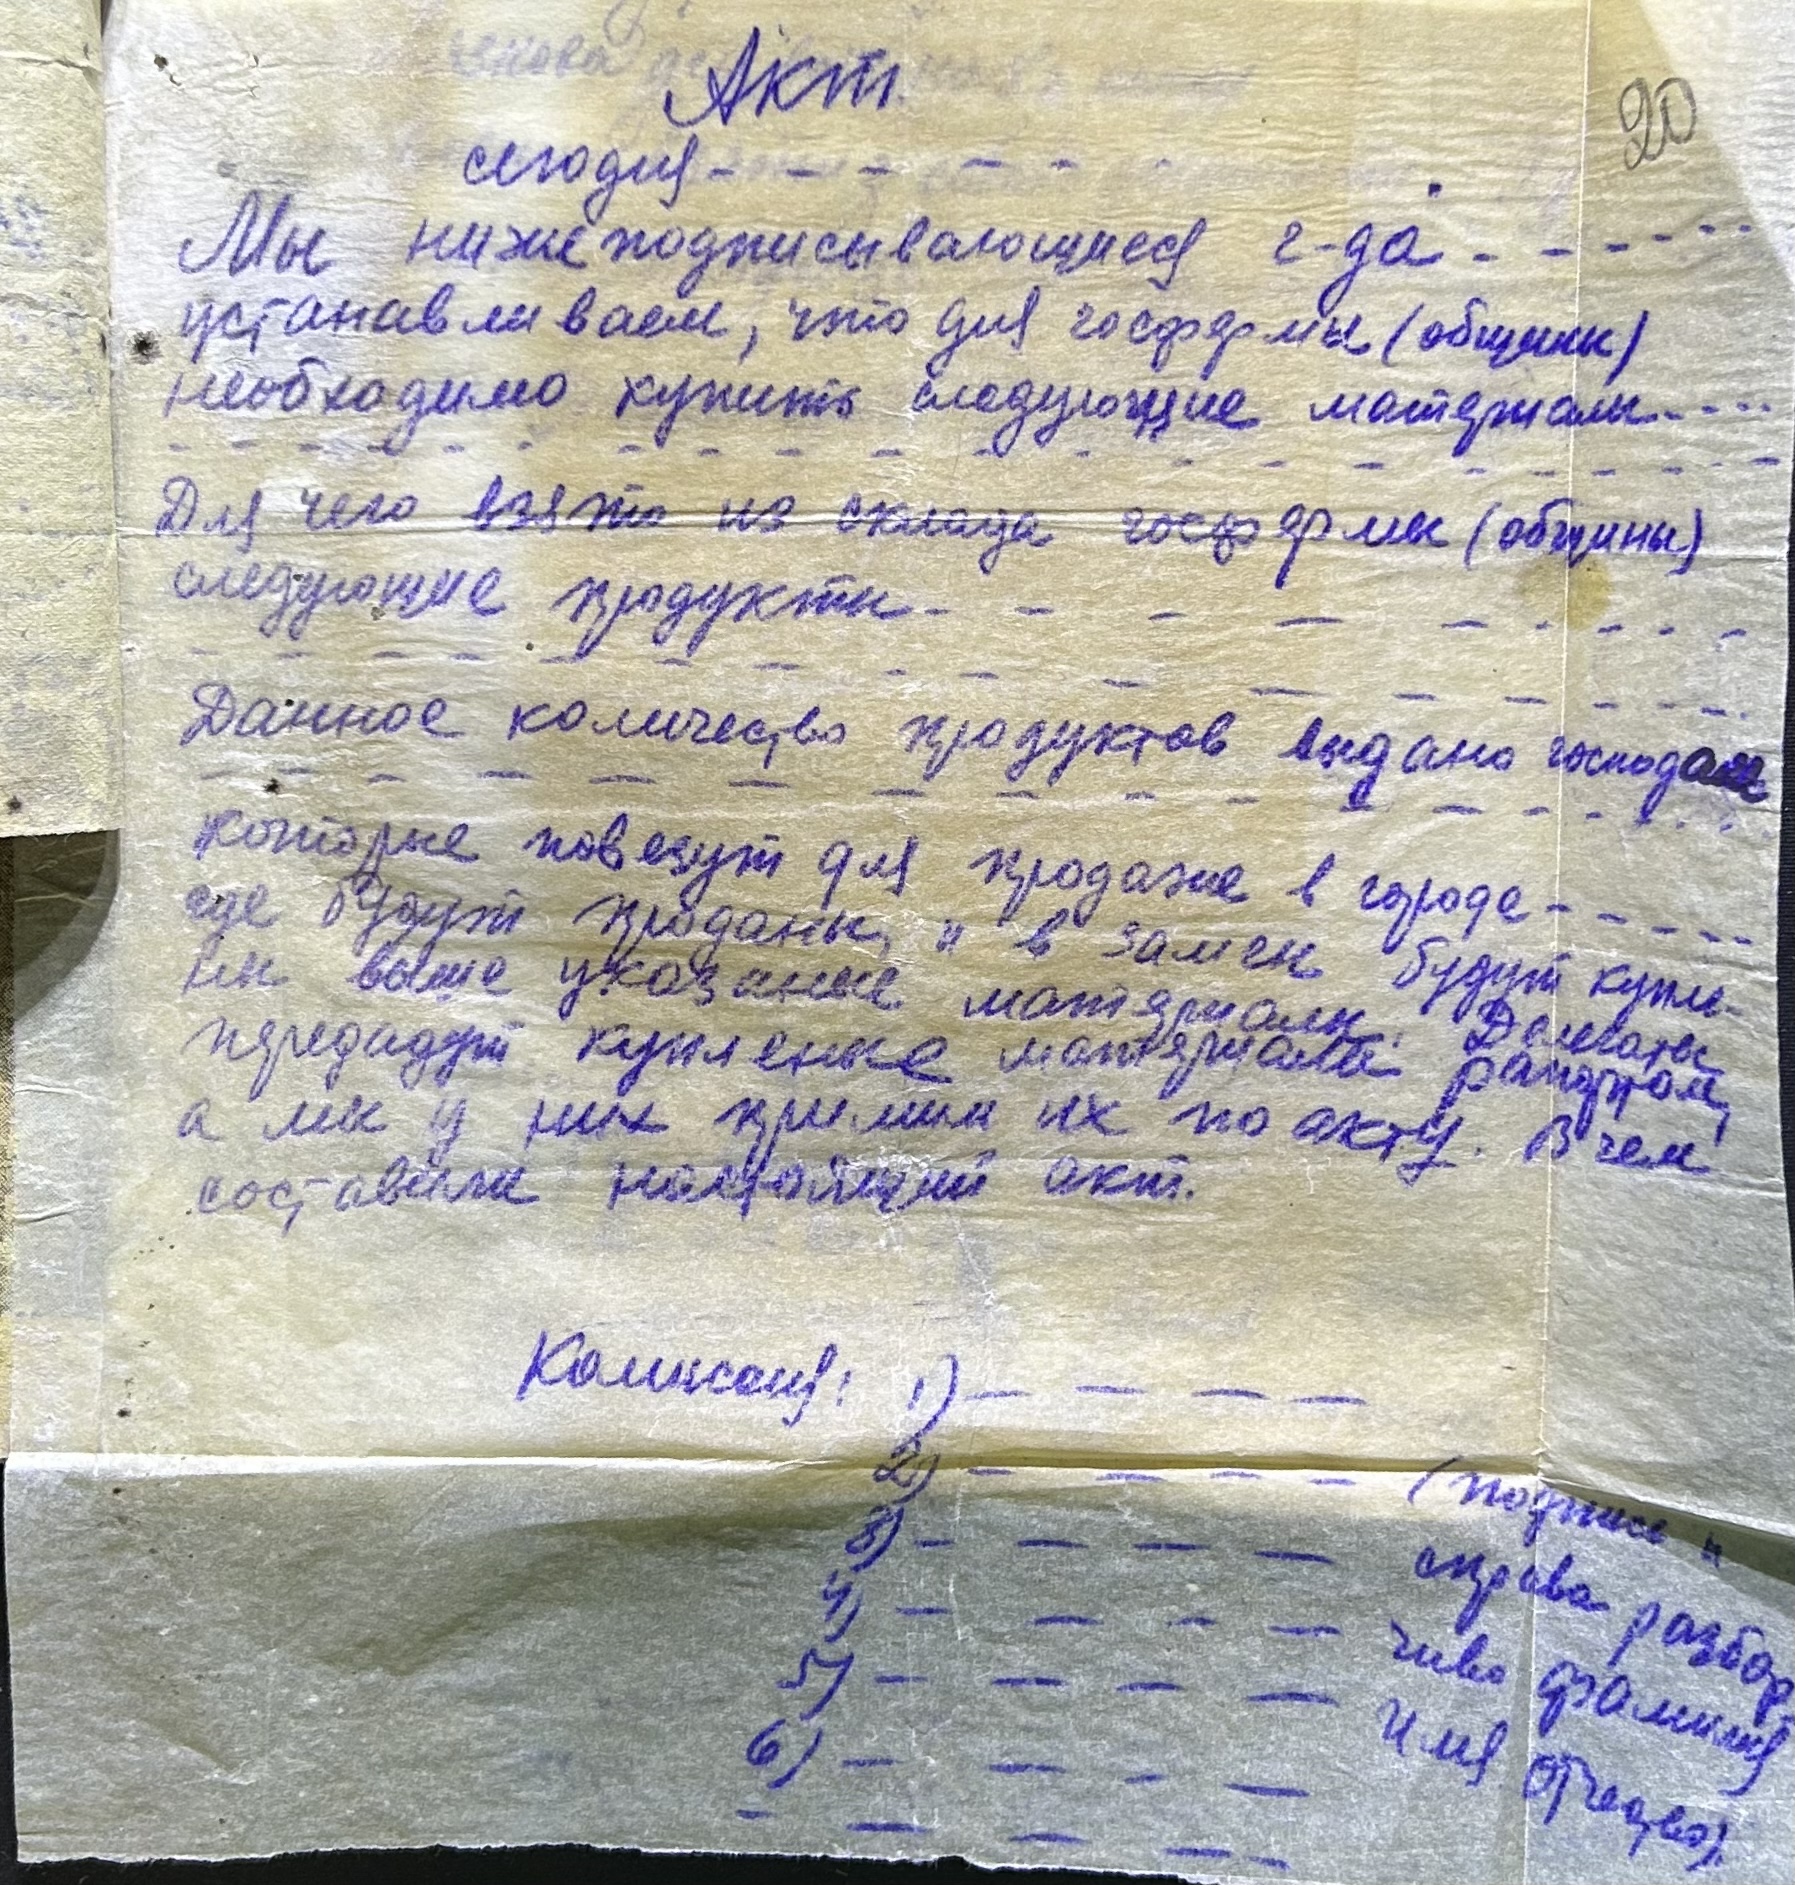 Акт.
20
сегодня - - - - - -
Мы нижеподписывающиеся г-да - - - - - -
устанавливаем, что для госфермы (общины)
необходимо купить следующие материалы - - - -
- - - - - - - - - - - - - - - - - -
Для чего взято из склада госфермы (общины)
следующие продукты - - - - - - - - -
- - - - - - - - - - - - - - - - -
Данное количество продуктов выдано господам
- - - - - - - - - - - - - - - - -
которые повезут для продаже в городе - - - - -
где будут проданы, и в замен будут купле-
ны выше указаные материалы. Делегаты
передадут купленые материалы рапортом,
а мы у них примим их по акту. В чем
составили настоящий акт.
Комиссия: 1) - - - -
2) - - - - (подпись и
3) - - - - справа разбор
4) - - - - чиво фамилия
5) - - - - Имя отчество).
6) - - - -
- - - - -